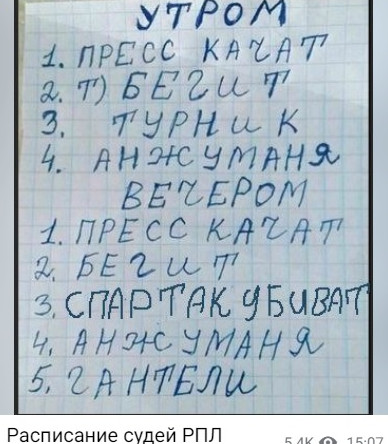 УТРОМ
1. ПРЕСС КАЧАТ
2. Т) БЕГИТ
3. ТУРНИК
4. АНЖУМАНЯ
ВЕЧЕРОМ
1. ПРЕСС КАЧАТ
2. БЕГИТ
3. СПАРТАК УБИВАТ
4. АНЖУМАНЯ
5. ГАНТЕЛИ
Расписание судей РПЛ
5.4K 15:07